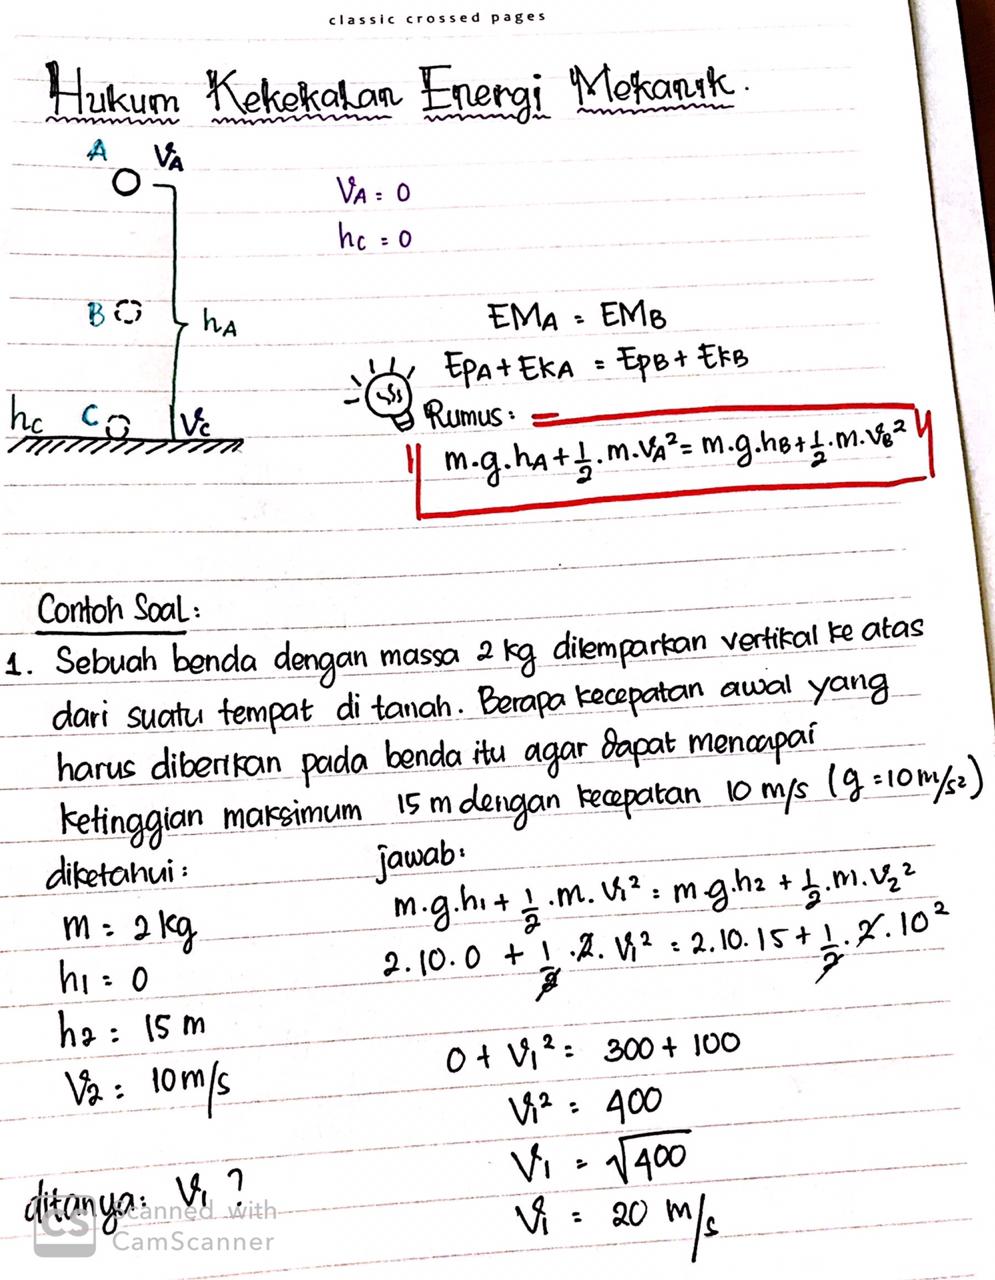 classic crossed pages
Hukum Kekekalan Energi Mekanik.
A VA
VA = 0
hc = 0
B hA
EMA = EMB
EPA + EKA = EPB + EKB
Rumus:
hc C Vc
m.g.hA + 1/2 .m.VA² = m.g.hB + 1/2 .m.VB²
Contoh Soal:
1. Sebuah benda dengan massa 2 kg dilemparkan vertikal ke atas
dari suatu tempat di tanah. Berapa kecepatan awal yang
harus diberikan pada benda itu agar dapat mencapai
ketinggian maksimum 15 m dengan kecepatan 10 m/s (g = 10 m/s²)
diketahui:
m = 2 kg
h1 = 0
h2 = 15 m
V2 = 10 m/s
ditanya: V1 ?
jawab:
m.g.h1 + 1/2 .m.V1² = m.g.h2 + 1/2 .m.V2²
2.10.0 + 1/2 .2.V1² = 2.10.15 + 1/2 .2.10²
0 + V1² = 300 + 100
V1² = 400
V1 = √400
V1 = 20 m/s
CS Scanned with
CamScanner